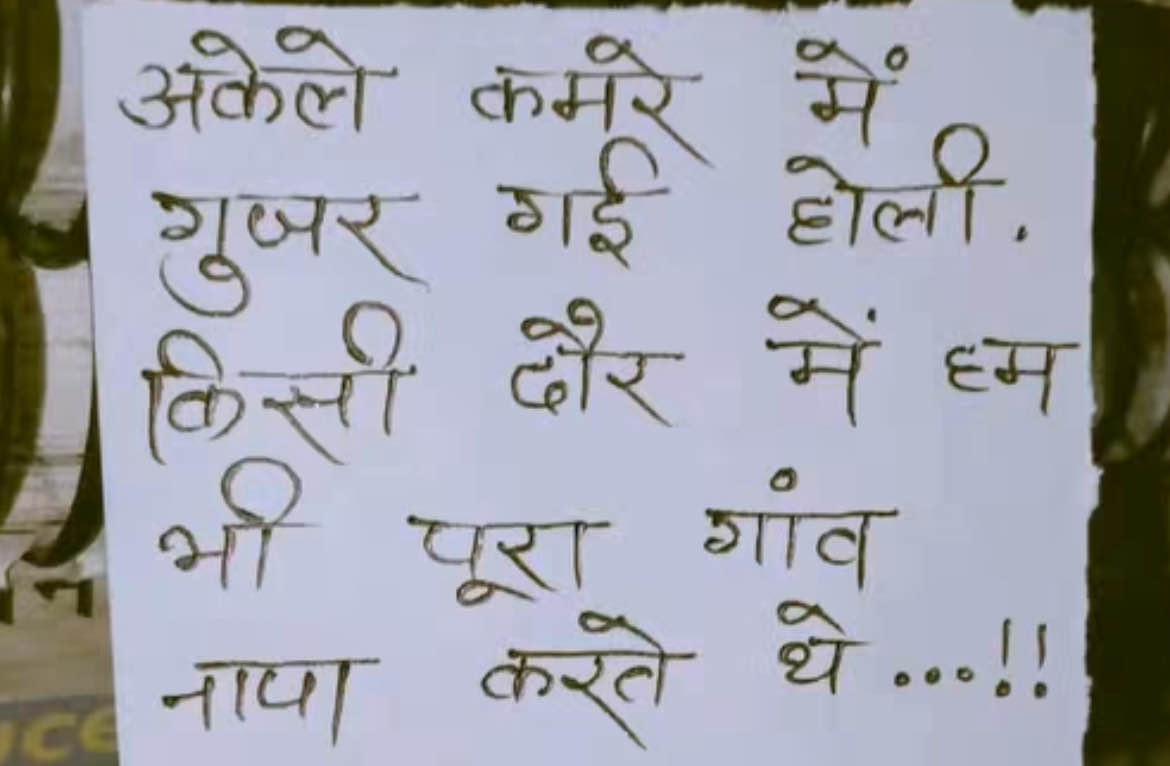 अकेले कमरे में
गुजर गई होली.
किसी दौर में हम
भी पूरा गांव
नापा करते थे...!!